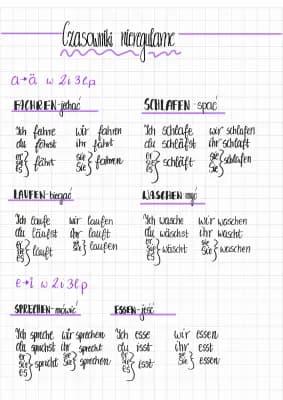 Czasowniki nieregularne
a→ä w 2i3lp
FAHREN-jechać SCHLAFEN-spać
Ich fahre wir fahren Ich schlafe wir schlafen
du fährst ihr fahrt du schläfst ihr schlaft
er sie es } fährt sie Sie } fahren er sie es } schläft sie Sie } schlafen
LAUFEN-biegać WASCHEN-myć
Ich laufe wir laufen Ich wasche wir waschen
du läufst ihr lauft du wäschst ihr wascht
er sie es } läuft sie Sie } laufen er sie es } wäscht sie Sie } waschen
e→i w 2i3lp
SPRECHEN-mówić ESSEN-jeść
Ich spreche wir sprechen Ich esse wir essen
du sprichst ihr sprecht du isst ihr esst
er sie es } spricht sie Sie } sprechen er sie es } isst sie Sie } essen